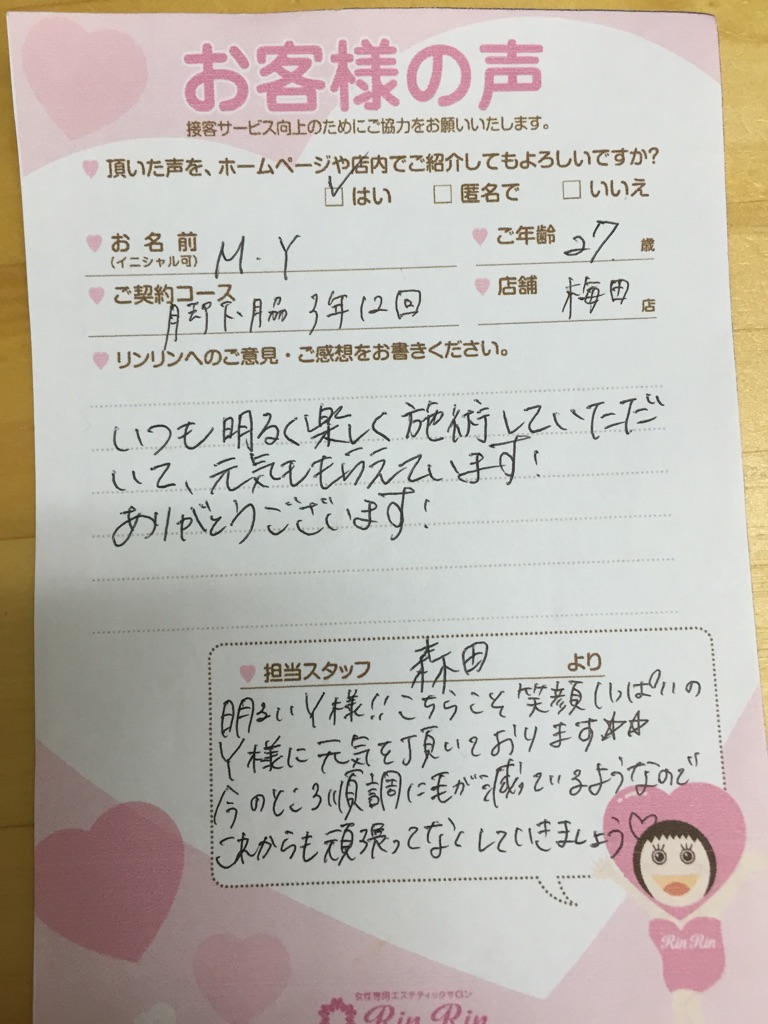 お客様の声
接客サービス向上のためにご協力をお願いいたします。
頂いた声を、ホームページや店内でご紹介してもよろしいですか?
はい 匿名で いいえ
お名前 (イニシャル可) M.Y ご年齢 27. 歳
ご契約コース 脚下、脇 3年12回 店舗 梅田 店
リンリンへのご意見・ご感想をお書きください。
いつも明るく楽しく施術していただ
いて、元気ももらえています!
ありがとうございます!
担当スタッフ 森田 より
明るいY様!!こちらこそ笑顔いっぱいの
Y様に元気を頂いております☆☆
今のところ順調に毛が減っているようなので
これからも頑張ってなくしていきましょう♡
Rin Rin
女性専用エステティックサロン
Rin Rin